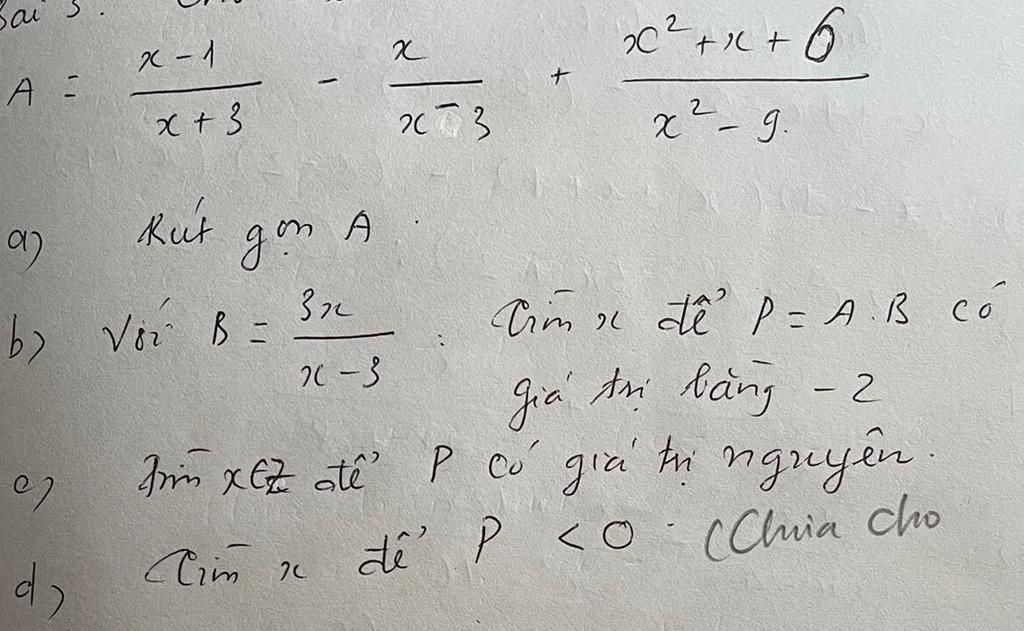 Bài 3.
A = \frac{x-1}{x+3} - \frac{x}{x-3} + \frac{x^2+x+6}{x^2-9}.
a) Rút gọn A.
b) Với B = \frac{3x}{x-3}. Tìm x để P = A.B có
giá trị bằng -2
c) Tìm x∈Z để P có giá trị nguyên.
d) Tìm x để P < 0. (Chia cho